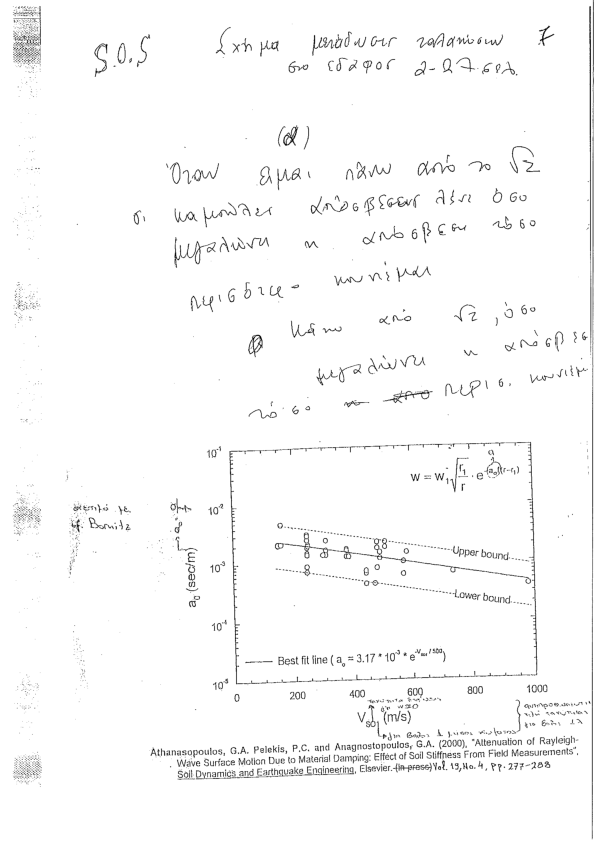 S.O.S Σχήμα μετάδωσις ταλαντώσεων 7
στο έδαφος 2-27 σελ.
(α)
Όταν είμαι πάνω από το √2
οι καμπύλες απόσβεσης λένε όσο
μεγαλώνει η απόσβεση τόσο
περισσότερο κουνιέμαι
κάτω από √2, όσο
μεγαλώνει η απόσβεση
τόσο περισ. κουνιέμαι
w = w₁ √(r₁/r) · e^-(a₀f)(r-r₁)
Bornitz
a₀ (sec/m)
10⁻¹
10⁻²
10⁻³
10⁻⁴
10⁻⁵
Upper bound
Lower bound
Best fit line ( a₀ = 3.17 * 10⁻³ * e^-Vso/500 )
0 200 400 600 800 1000
V_SO (m/s)
Athanasopoulos, G.A. Pelekis, P.C. and Anagnostopoulos, G.A. (2000), "Attenuation of Rayleigh-
Wave Surface Motion Due to Material Damping: Effect of Soil Stiffness From Field Measurements",
Soil Dynamics and Earthquake Engineering, Elsevier. (in press) Vol. 19, No. 4, pp. 277-288